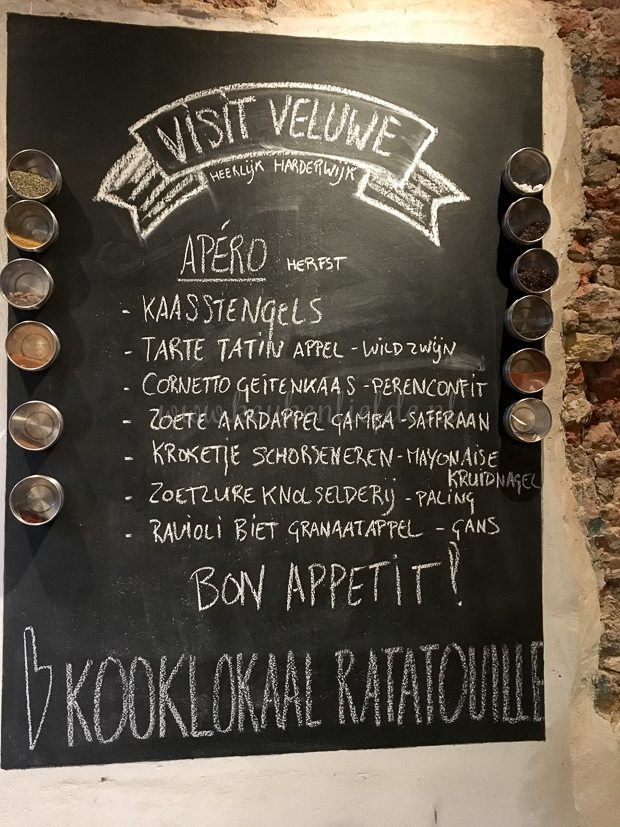 VISIT VELUWE
HEERLIJK HARDERWIJK
APÉRO HERFST
- KAASSTENGELS
- TARTE TATIN APPEL - WILDZWIJN
- CORNETTO GEITENKAAS - PERENCONFIT
- ZOETE AARDAPPEL GAMBA - SAFFRAAN
- KROKETJE SCHORSENEREN - MAYONAISE
KRUIDNAGEL
- ZOETZURE KNOLSELDERIJ - PALING
- RAVIOLI BIET GRANAATAPPEL - GANS
BON APPETIT!
KOOKLOKAAL RATATOUILLE